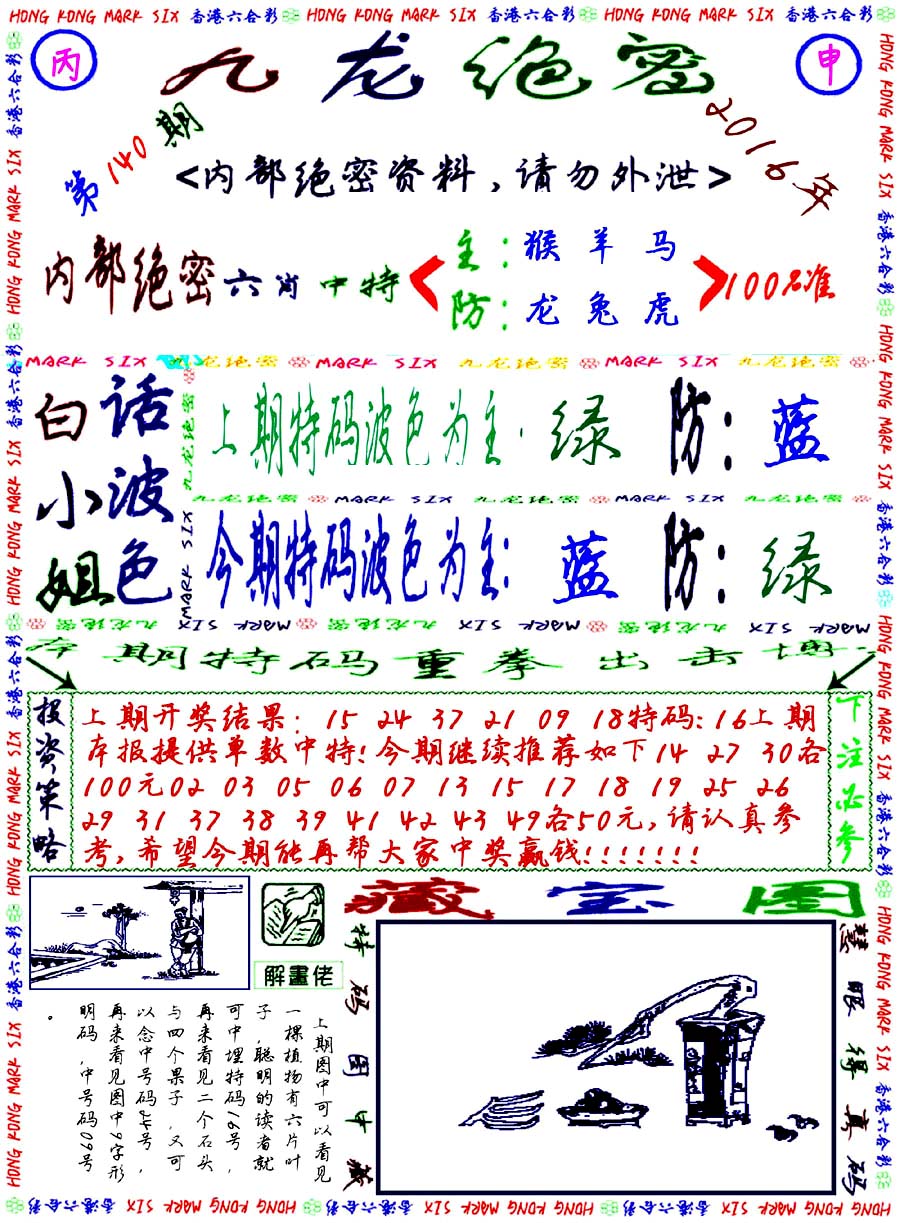 HONG KONG MARK SIX 香港六合彩 HONG KONG MARK SIX 香港六合彩 HONG KONG MARK SIX 香港六合彩
丙
九龙绝密
申
第140期
2016年
<内部绝密资料,请勿外泄>
内部绝密六肖中特
主:猴羊马
防:龙兔虎
100%准
MARK SIX 九龙绝密 MARK SIX 九龙绝密 MARK SIX 九龙绝密
白话小波姐色
上期特码波色为主:绿 防:蓝
九龙绝密 MARK SIX 九龙绝密 MARK SIX 九龙绝密
今期特码波色为主:蓝 防:绿
九龙绝密 MARK SIX 九龙绝密 MARK SIX 九龙绝密 MARK SIX
本期特码重拳出击博
投资策略
上期开奖结果:15 24 37 21 09 18特码:16上期
本报提供单数中特!今期继续推荐如下14 27 30各
100元02 03 05 06 07 13 15 17 18 19 25 26
29 31 37 38 39 41 42 43 49各50元,请认真参
考,希望今期能再帮大家中奖赢钱!!!!!!!
下注必参
藏宝图
解畫佬
上期图中可以看见
一棵植物有六片叶
子,聪明的读者就
可中埋特码16号,
再来看见二个石头
与四个果子,又可
以念中号码24号,
再来看见图中9字形
明码,中号码09号
。
特码图中藏
慧眼得真码
HONG KONG MARK SIX 香港六合彩 HONG KONG MARK SIX 香港六合彩 HONG KONG MARK SIX 香港六合彩